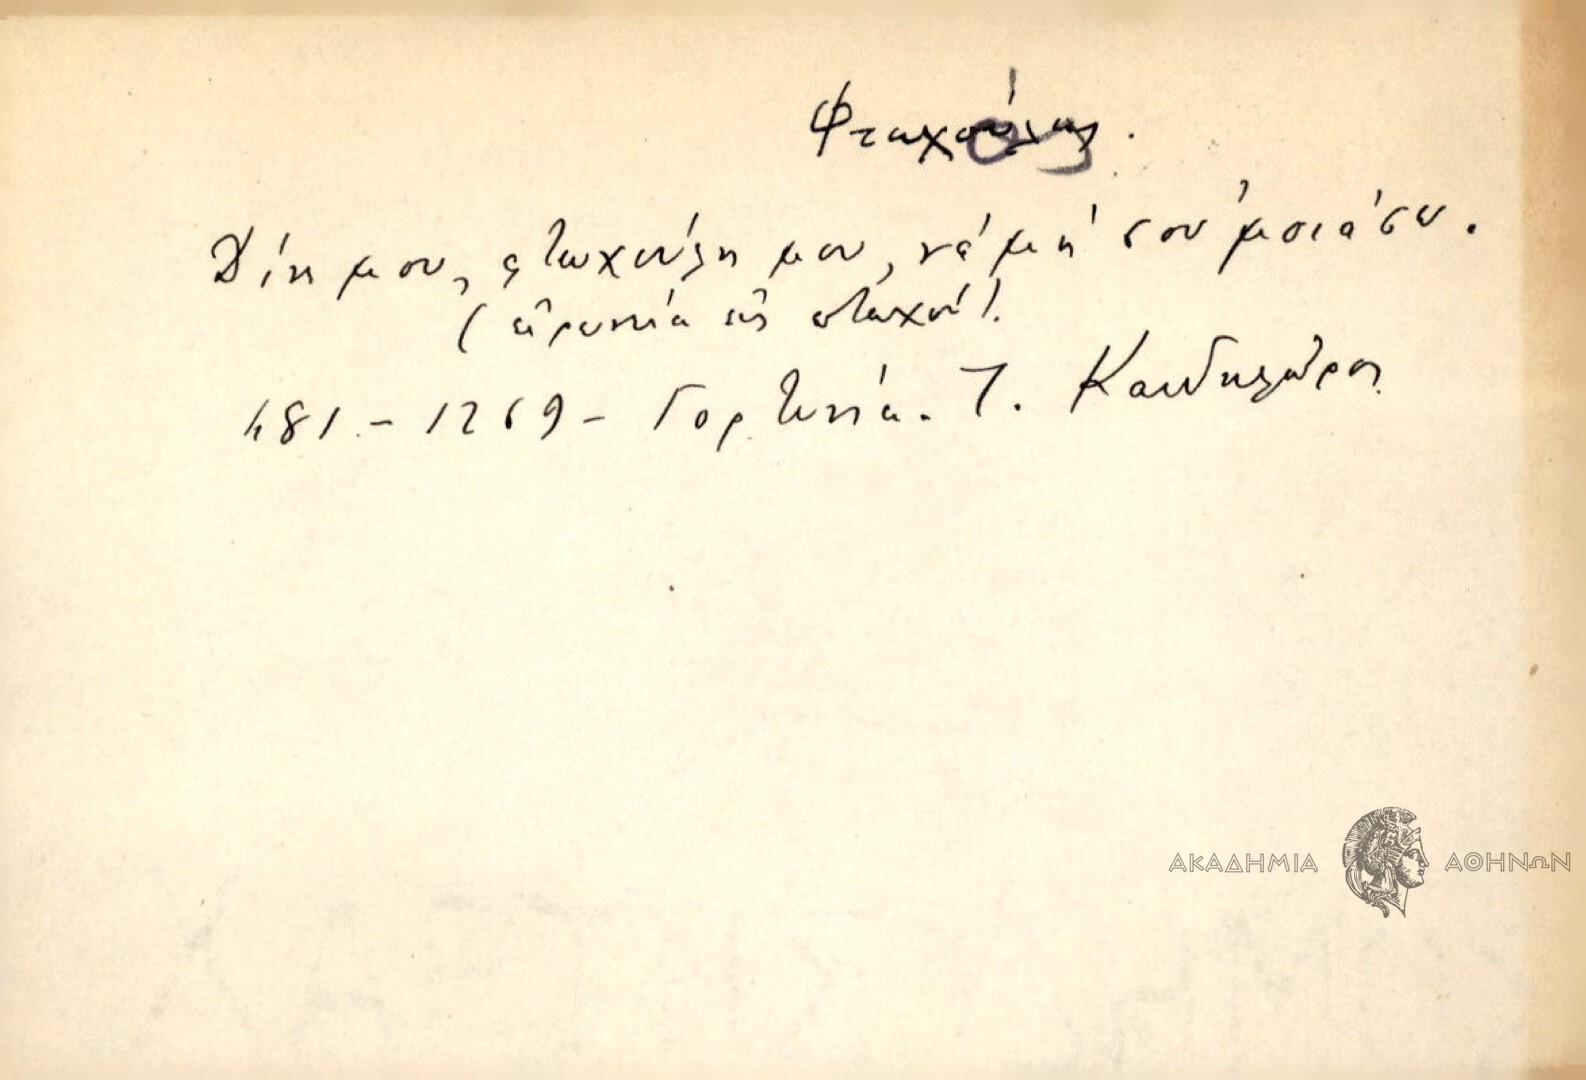 Φτωχούλης.
Δίκη μου, φτωχούλη μου, νά μή σου μοιάσω.
(εἰρωνεία εἰς πτωχού).
481. - 1269 - Γορτυνία. Τ. Κανδηλῶρος
ΑΚΑΔΗΜΙΑ ΑΘΗΝΩΝ